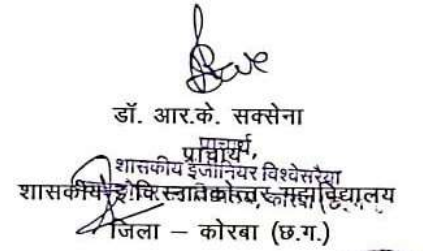 डॉ. आर.के. सक्सेना
प्राचार्य,
प्राचार्य
शासकीय इंजीनियर विश्वेसरैया
शासकीय इं.वि. स्नातकोत्तर महाविद्यालय
कोरबा
जिला – कोरबा (छ.ग.)